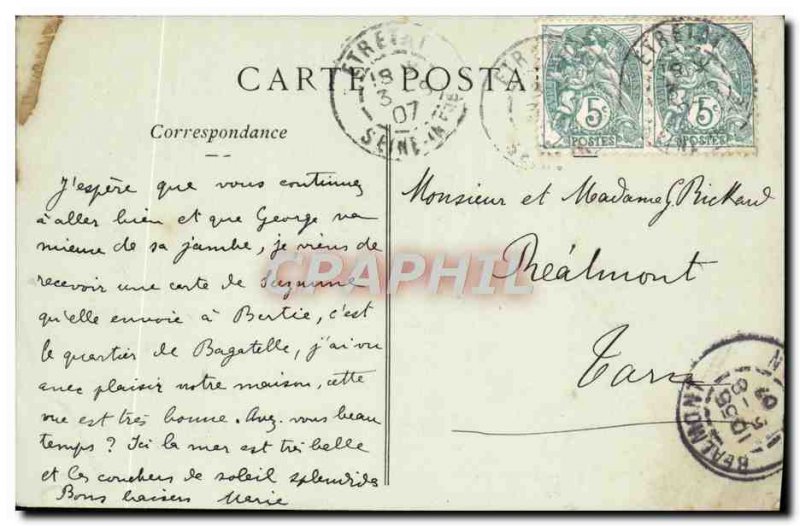 CARTE POSTA
Correspondance
J'espère que vous continuez
à aller bien et que George va
mieux de sa jambe, je viens de
recevoir une carte de Suzanne
qu'elle envoie à Bertie, c'est
le quartier de Bagatelle, j'ai vu
avec plaisir notre maison, cette
vue est très bonne. Avez-vous beau
temps ? Ici la mer est très belle
et les couchers de soleil splendides
Bons baisers Marie
ETRETAT
18
3 9
07
SEINE-INFRE
5c 5c
POSTES POSTES
ETRETAT
Monsieur et Madame G. Rickard
Réalmont
Tarn
REALMONT
CPARAPHIL